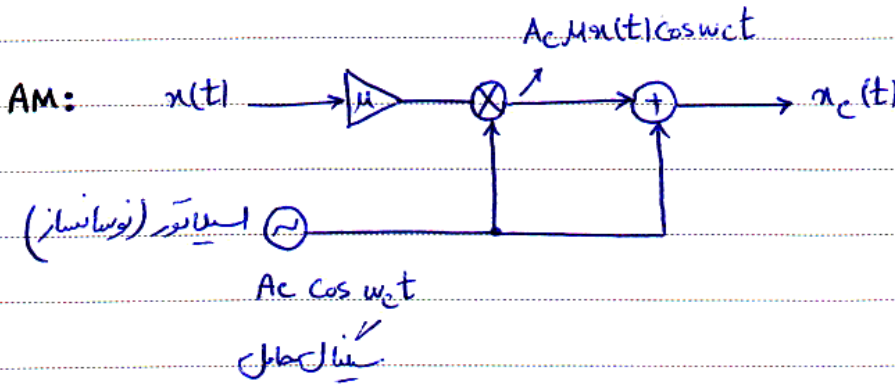 Ac μx(t) cos wct
AM: x(t) μ × + xc(t)
اسیلاتور (نوسانساز) ~
Ac cos wct
سیگنال حامل